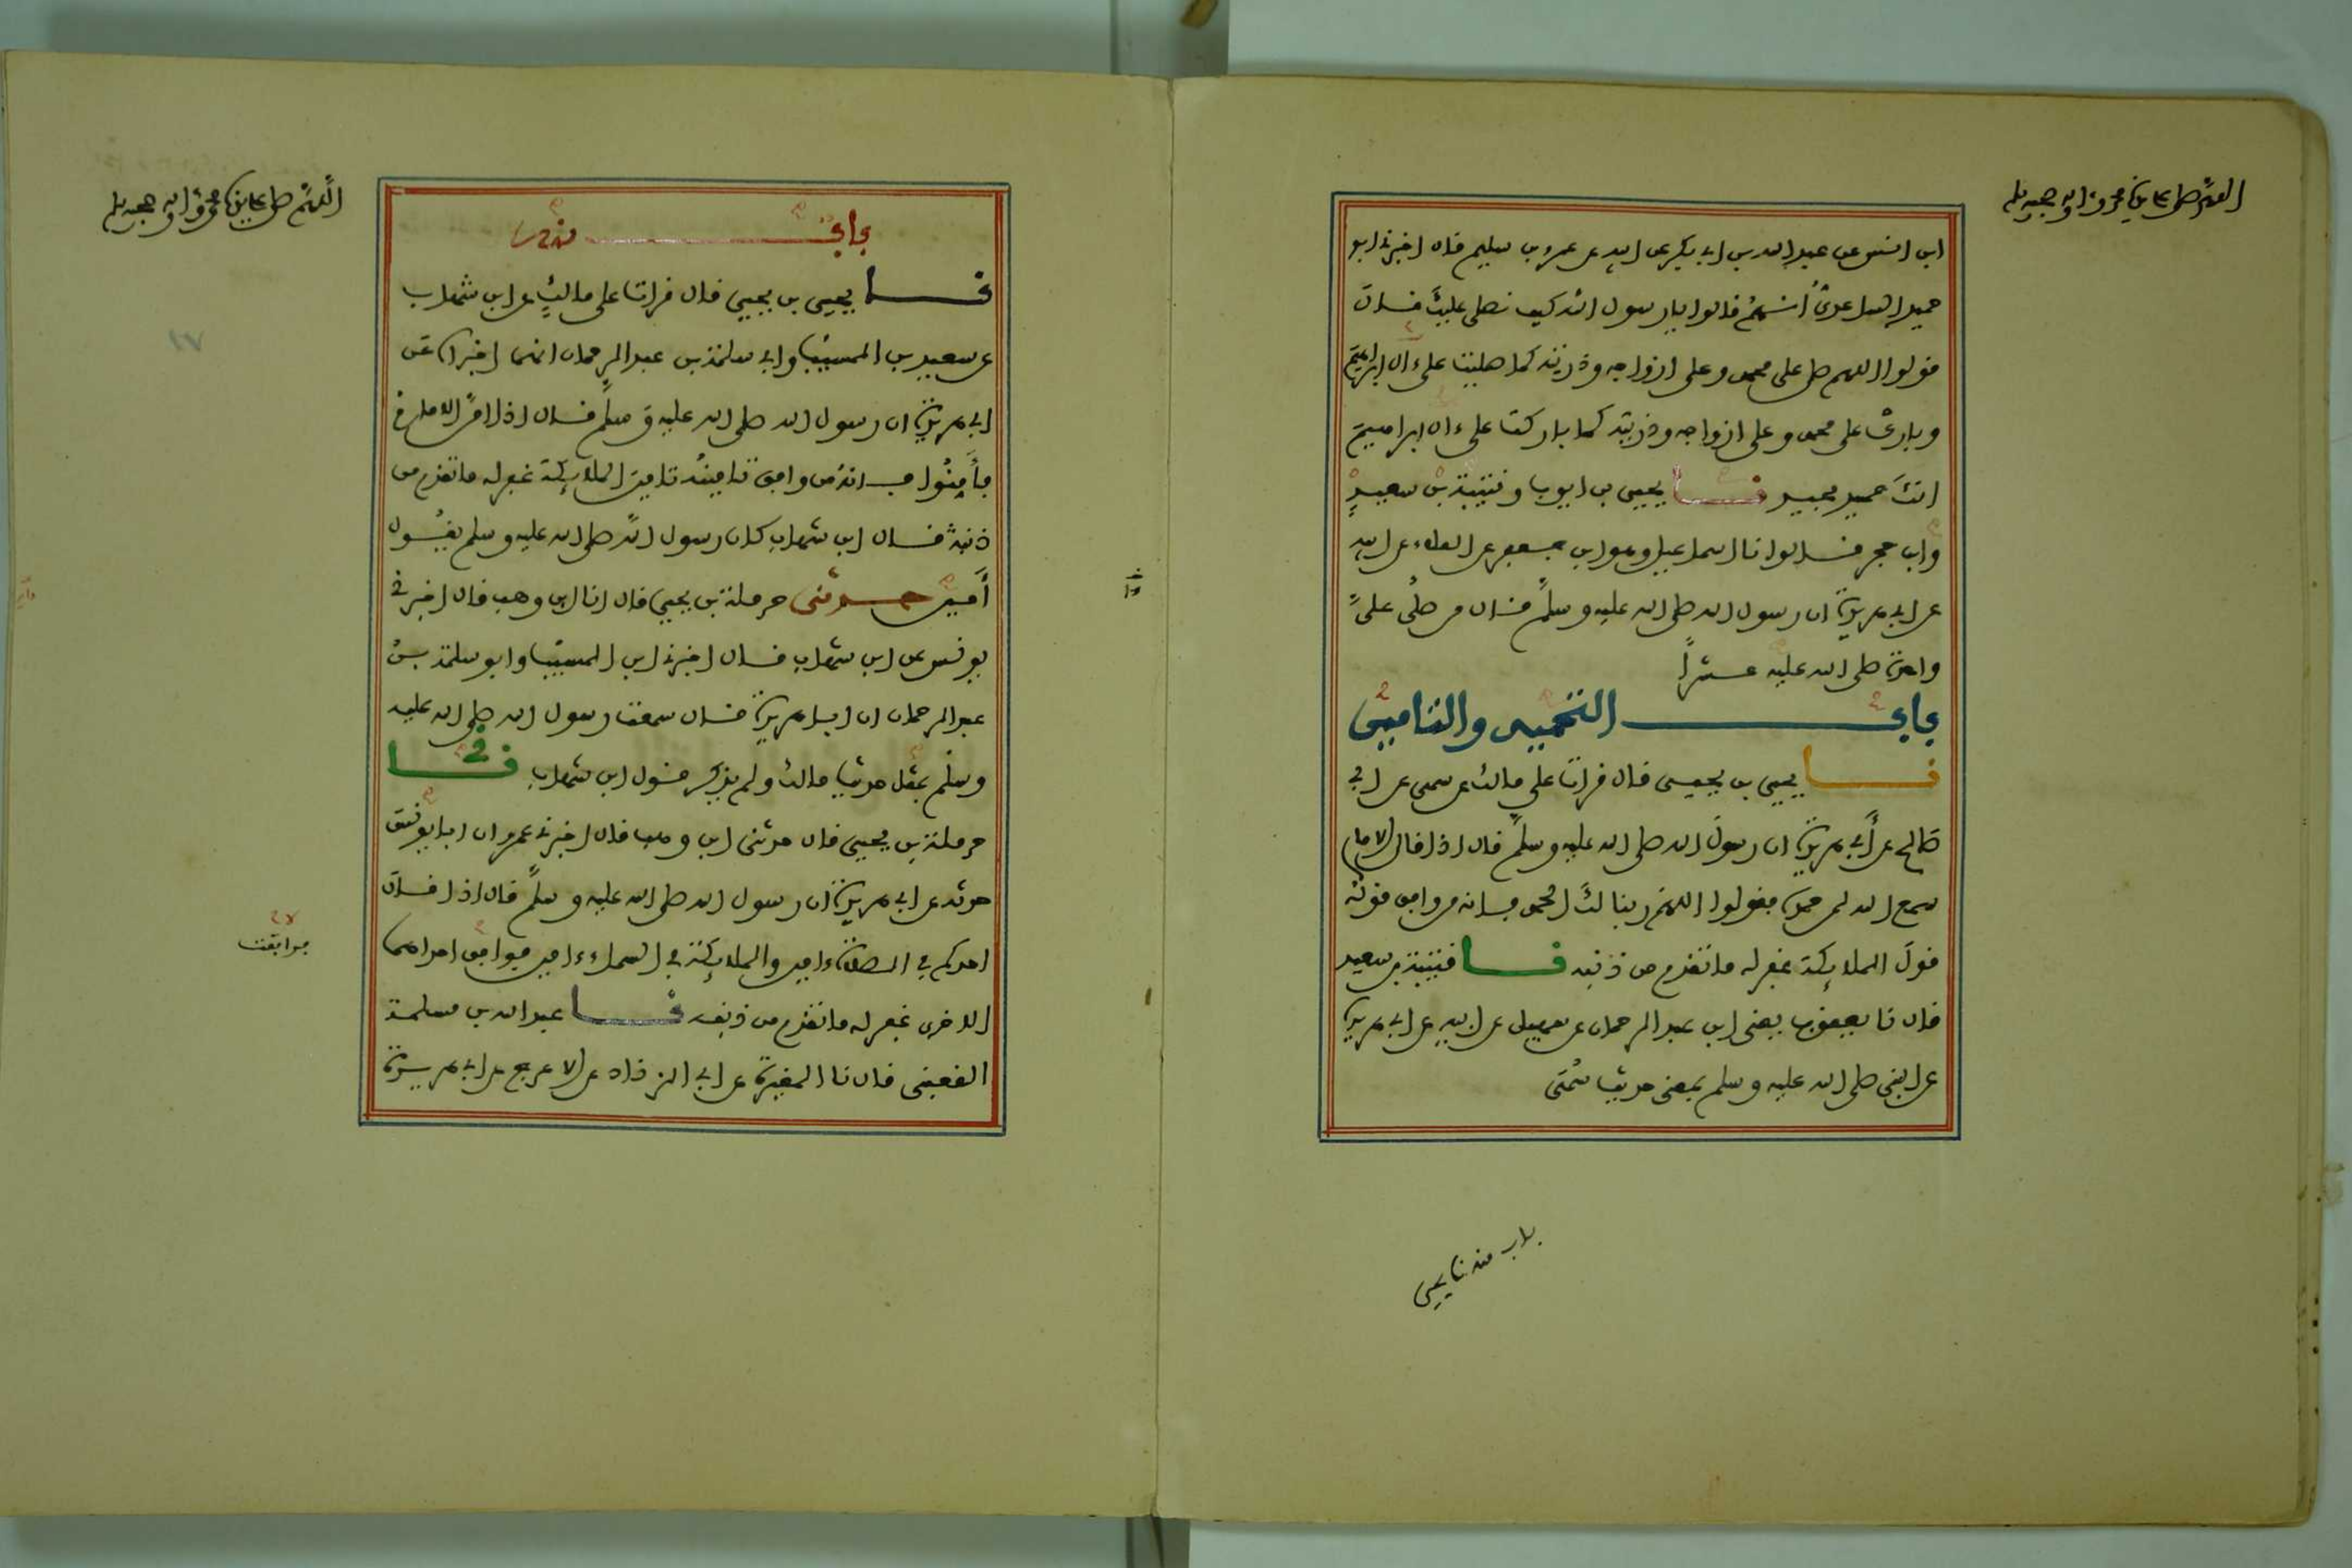 اللهم صل على سيدنا محمد وءاله وصحبه وسلم
ابن انس عن عبد الله بن ابي بكر عن ابيه عن عمرو بن سليم قال اخبرني ابو
حميد الساعدي أنهم قالوا يا رسول الله كيف نصلي عليك قال
قولوا اللهم صل على محمد وعلى ازواجه وذريته كما صليت على ءال ابراهيم
وبارك على محمد وعلى ازواجه وذريته كما باركت على ءال ابراهيم
انك حميد مجيد نا يحيى بن ايوب وقتيبة بن سعيد
وابن حجر قالوا نا اسماعيل وهو ابن جعفر عن العلاء عن ابيه
عن ابي هريرة ان رسول الله صلى الله عليه وسلم قال من صلى علي
واحدة صلى الله عليه عشرا
باب التحميد والتامين
نا يحيى بن يحيى قال قرات على مالك عن سمي عن ابي
صالح عن أبي هريرة ان رسول الله صلى الله عليه وسلم قال اذا قال الامام
سمع الله لمن حمده فقولوا اللهم ربنا لك الحمد فانه من وافق قوله
قول الملائكة غفر له ما تقدم من ذنبه نا قتيبة بن سعيد
قال نا يعقوب يعني ابن عبد الرحمان عن سهيل عن ابيه عن ابي هريرة
عن النبي صلى الله عليه وسلم بمعنى حديث سمي
باب منه نا يحيى
اللهم صل على سيدنا محمد وءاله وصحبه وسلم
باب منه
نا يحيى بن يحيى قال قرات على مالك عن ابن شهاب
عن سعيد بن المسيب وابي سلمة بن عبد الرحمان انهما اخبراه عن
ابي هريرة ان رسول الله صلى الله عليه وسلم قال اذا امن الامام
فأمنوا فانه من وافق تامينه تامين الملائكة غفر له ما تقدم من
ذنبه قال ابن شهاب كان رسول الله صلى الله عليه وسلم يقول
أمين حدثني حرملة بن يحيى قال انا ابن وهب قال اخبرني
يونس عن ابن شهاب قال اخبرني ابن المسيب وابو سلمة بن
عبد الرحمان ان ابا هريرة قال سمعت رسول الله صلى الله عليه
وسلم بمثل حديث مالك ولم يذكر قول ابن شهاب نا
حرملة بن يحيى قال حدثني ابن وهب قال اخبرني عمرو ان ابا يونس
حدثه عن ابي هريرة ان رسول الله صلى الله عليه وسلم قال اذا قال
احدكم في الصلاة ءامين والملائكة في السماء ءامين فوافق احداهما
فوافقت
الاخرى غفر له ما تقدم من ذنبه نا عبد الله بن مسلمة
القعنبي قال نا المغيرة عن ابي الزناد عن الاعرج عن ابي هريرة